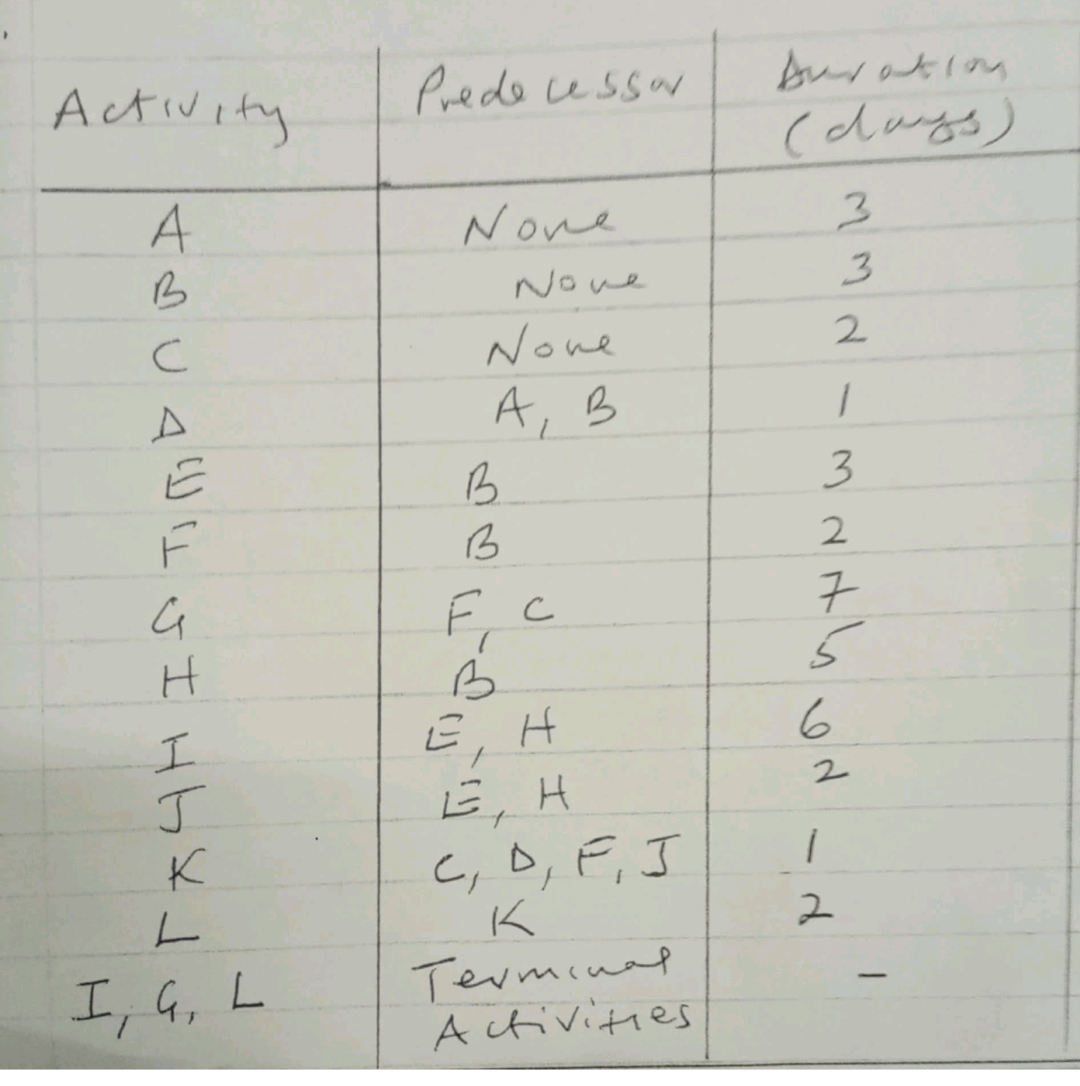 Activity Predecessor Duration (days)
A None 3
B None 3
C None 2
D A, B 1
E B 3
F B 2
G F, C 7
H B 5
I E, H 6
J E, H 2
K C, D, F, J 1
L K 2
I, G, L Terminal Activities –